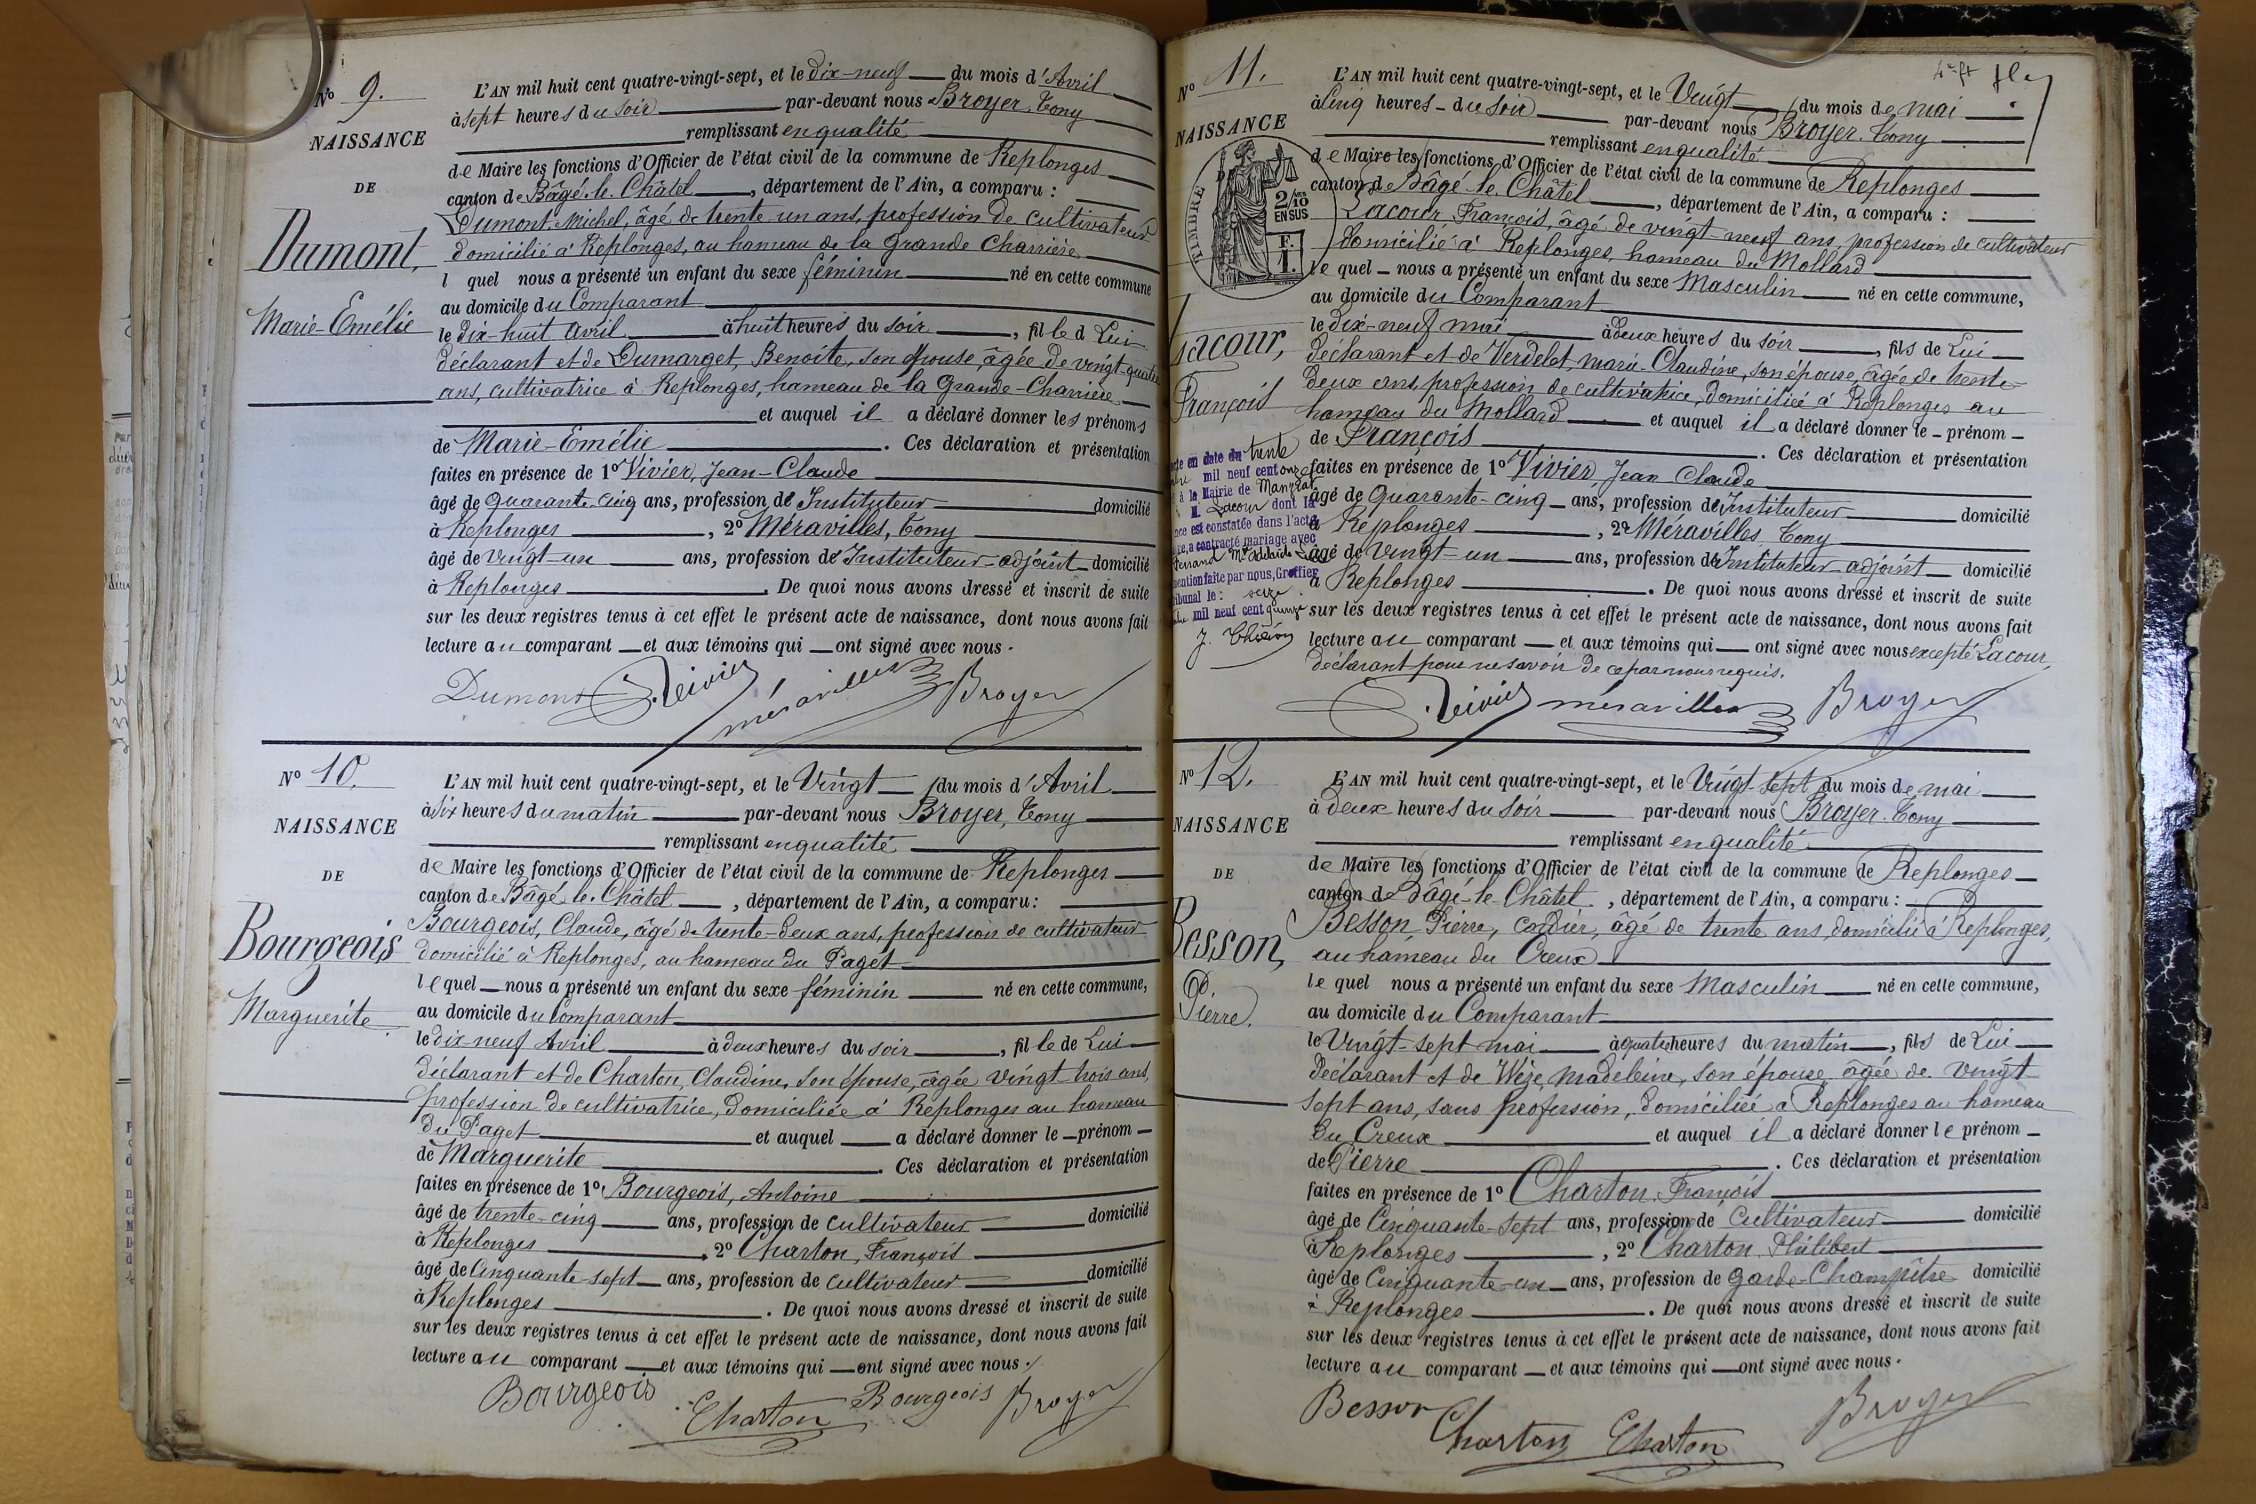 Nº 9.
NAISSANCE
DE
Dumont,
Marie-Emélie
L'AN mil huit cent quatre-vingt-sept, et le dix-neuf du mois d'Avril
à sept heures du soir par-devant nous Broyer, Tony
remplissant en qualité
de Maire les fonctions d'Officier de l'état civil de la commune de Replonges
canton de Bâgé-le-Châtel, département de l'Ain, a comparu :
Dumont, Michel, âgé de trente un ans, profession de cultivateur
domicilié à Replonges, au hameau de la Grande Charrière
l quel nous a présenté un enfant du sexe féminin né en cette commune
au domicile du Comparant
le dix-huit avril à huit heures du soir, fille d Lui
déclarant et de Dumarget, Benoite, son épouse, âgée de vingt-quatre
ans, cultivatrice à Replonges, hameau de la Grande-Charrière
et auquel il a déclaré donner les prénoms
de Marie-Emélie. Ces déclaration et présentation
faites en présence de 1º Vivier, Jean-Claude
âgé de quarante-cinq ans, profession de Instituteur domicilié
à Replonges, 2º Méravilles, Tony
âgé de vingt-un ans, profession de Instituteur-adjoint domicilié
à Replonges. De quoi nous avons dressé et inscrit de suite
sur les deux registres tenus à cet effet le présent acte de naissance, dont nous avons fait
lecture au comparant et aux témoins qui ont signé avec nous.
Dumont J. Vivier méravilles Broyer
Nº 10.
NAISSANCE
DE
Bourgeois
Marguerite.
L'AN mil huit cent quatre-vingt-sept, et le Vingt du mois d'Avril
à six heures du matin par-devant nous Broyer, Tony
remplissant en qualité
de Maire les fonctions d'Officier de l'état civil de la commune de Replonges
canton de Bâgé-le-Châtel, département de l'Ain, a comparu :
Bourgeois, Claude, âgé de trente-deux ans, profession de cultivateur
domicilié à Replonges, au hameau du Paget
lequel nous a présenté un enfant du sexe féminin né en cette commune,
au domicile du Comparant
le dix-neuf Avril à deux heures du soir, fille de Lui
déclarant et de Charton, Claudine, son épouse, âgée vingt trois ans,
profession de cultivatrice, domiciliée à Replonges au hameau
du Paget et auquel a déclaré donner le prénom
de Marguerite. Ces déclaration et présentation
faites en présence de 1º Bourgeois, Antoine
âgé de trente-cinq ans, profession de cultivateur domicilié
à Replonges, 2º Charton, François
âgé de Cinquante-sept ans, profession de cultivateur domicilié
à Replonges. De quoi nous avons dressé et inscrit de suite
sur les deux registres tenus à cet effet le présent acte de naissance, dont nous avons fait
lecture au comparant et aux témoins qui ont signé avec nous.
Bourgeois Charton Bourgeois Broyer
Nº 11.
NAISSANCE
DE
TIMBRE
2/10
EN SUS
F.
1.
Lacour,
François
L'AN mil huit cent quatre-vingt-sept, et le Vingt du mois de mai
à cinq heures du soir par-devant nous Broyer, Tony
remplissant en qualité
de Maire les fonctions d'Officier de l'état civil de la commune de Replonges
canton de Bâgé-le-Châtel, département de l'Ain, a comparu :
Lacour, François, âgé de vingt-neuf ans, profession de cultivateur
domicilié à Replonges, hameau du Mollard
le quel nous a présenté un enfant du sexe Masculin né en cette commune,
au domicile du Comparant
le dix-neuf mai à deux heures du soir, fils de Lui
déclarant et de Verdelet, Marie-Claudine, son épouse, âgée de trente-
deux ans, profession de cultivatrice, domiciliée à Replonges au
hameau du Mollard et auquel il a déclaré donner le prénom
de François. Ces déclaration et présentation
faites en présence de 1º Vivier, Jean Claude
âgé de quarante-cinq ans, profession de Instituteur domicilié
à Replonges, 2º Méravilles, Tony
âgé de vingt-un ans, profession de Instituteur-adjoint domicilié
à Replonges. De quoi nous avons dressé et inscrit de suite
sur les deux registres tenus à cet effet le présent acte de naissance, dont nous avons fait
lecture au comparant et aux témoins qui ont signé avec nous excepté Lacour,
déclarant pour ne savoir de ce par nous requis.
en date du trente
mil neuf cent onze
à la Mairie de
M. Lacour dont la
est constatée dans l'acte
a contracté mariage avec
mention faite par nous, Greffier
le : seize
mil neuf cent quinze
J. Vivier méravilles Broyer
Nº 12.
NAISSANCE
DE
Besson,
Pierre.
L'AN mil huit cent quatre-vingt-sept, et le Vingt-sept du mois de mai
à deux heures du soir par-devant nous Broyer, Tony
remplissant en qualité
de Maire les fonctions d'Officier de l'état civil de la commune de Replonges
canton de Bâgé-le-Châtel, département de l'Ain, a comparu :
Besson, Pierre, cordier, âgé de trente ans, domicilié à Replonges,
au hameau du Creux
le quel nous a présenté un enfant du sexe Masculin né en cette commune,
au domicile du Comparant
le Vingt-sept mai à quatre heures du matin, fils de Lui
déclarant et de Madeleine, son épouse, âgée de vingt
sept ans, sans profession, domiciliée à Replonges au hameau
du Creux et auquel il a déclaré donner le prénom
de Pierre. Ces déclaration et présentation
faites en présence de 1º Charton, François
âgé de Cinquante-sept ans, profession de Cultivateur domicilié
à Replonges, 2º Charton, Philibert
âgé de Cinquante-un ans, profession de garde-Champêtre domicilié
à Replonges. De quoi nous avons dressé et inscrit de suite
sur les deux registres tenus à cet effet le présent acte de naissance, dont nous avons fait
lecture au comparant et aux témoins qui ont signé avec nous.
Besson Charton Charton Broyer